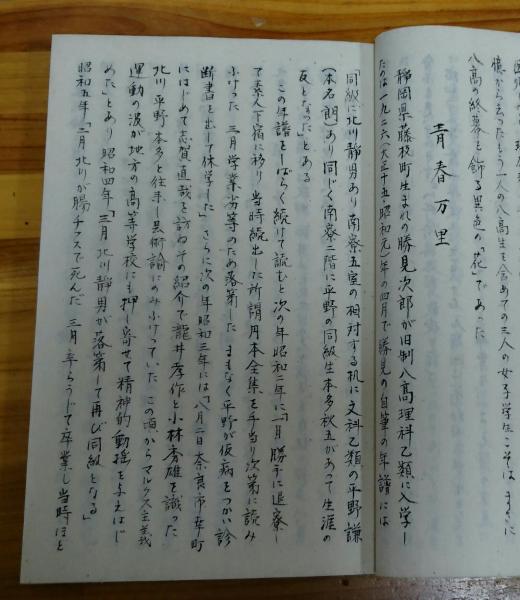 憶から去ったもう一人の八高生を含めての三人の女子学生こそは まさに
八高の終幕を飾る異色の「花」であった
青春万里
静岡県藤枝町生まれの勝見次郎が旧制八高理科乙類に入学し
たのは一九二六(大正十五・昭和元)年の四月で勝見の自筆の年譜には
「同級に北川静男あり 南寮五室の相対する机に文科乙類の平野謙
(本名 朗)あり 同じく南寮二階に平野の同級生本多秋五があって生涯の
友となった」とある
この年譜をしばらく続けて読むと次の年昭和二年に「一月 勝手に退寮し
て素人下宿に移り 当時続出した所謂円本全集を手当り次第に読み
ふけった 三月学業劣等のため落第した まもなく平野が仮病をつかい診
断書を出して休学した」さらに次の年昭和三年には「八月二日奈良市幸町
にはじめて志賀直哉を訪ねその紹介で瀧井孝作と小林秀雄を識った
北川 平野 本多と往来し芸術論にのみふけっていた この頃からマルクス主義
運動の波が地方の高等学校にも押し寄せて精神的動揺を与えはじ
めた」とあり 昭和四年「三月 北川静男が落第して再び同級となる」
昭和五年「二月 北川が腸チフスで死んだ 三月 辛うじて卒業し当時ほと